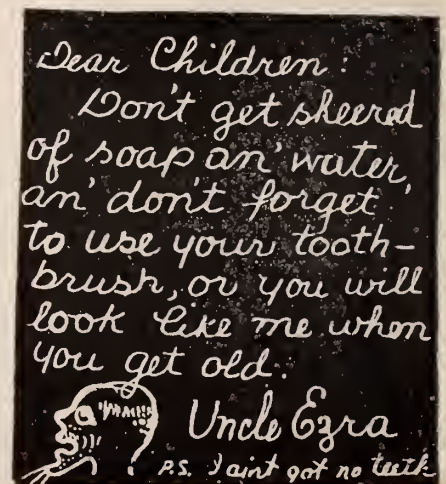 Dear Children:
Don't get skeered
of soap an' water,
an' don't forget
to use your tooth-
brush, or you will
look like me when
you get old.
Uncle Ezra
P.S. I aint got no teeth